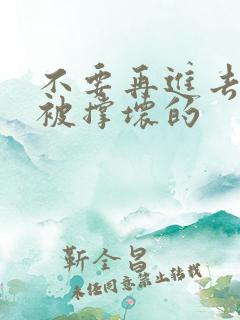 不要再进去
被撑坏的
靳全昌
未经同意禁止转载